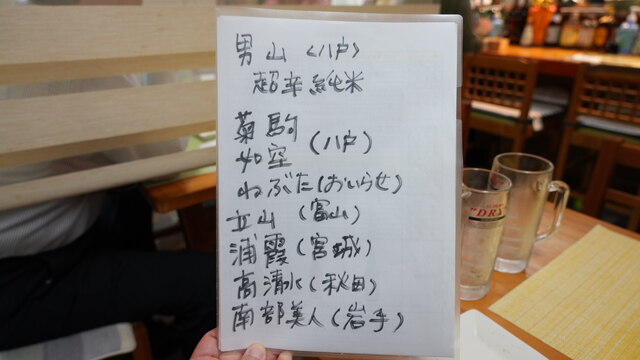 男山(八戸)
超辛純米
菊駒
如空(八戸)
ねぶた(おいらせ)
立山(富山)
浦霞(宮城)
高清水(秋田)
南部美人(岩手)
"DRY